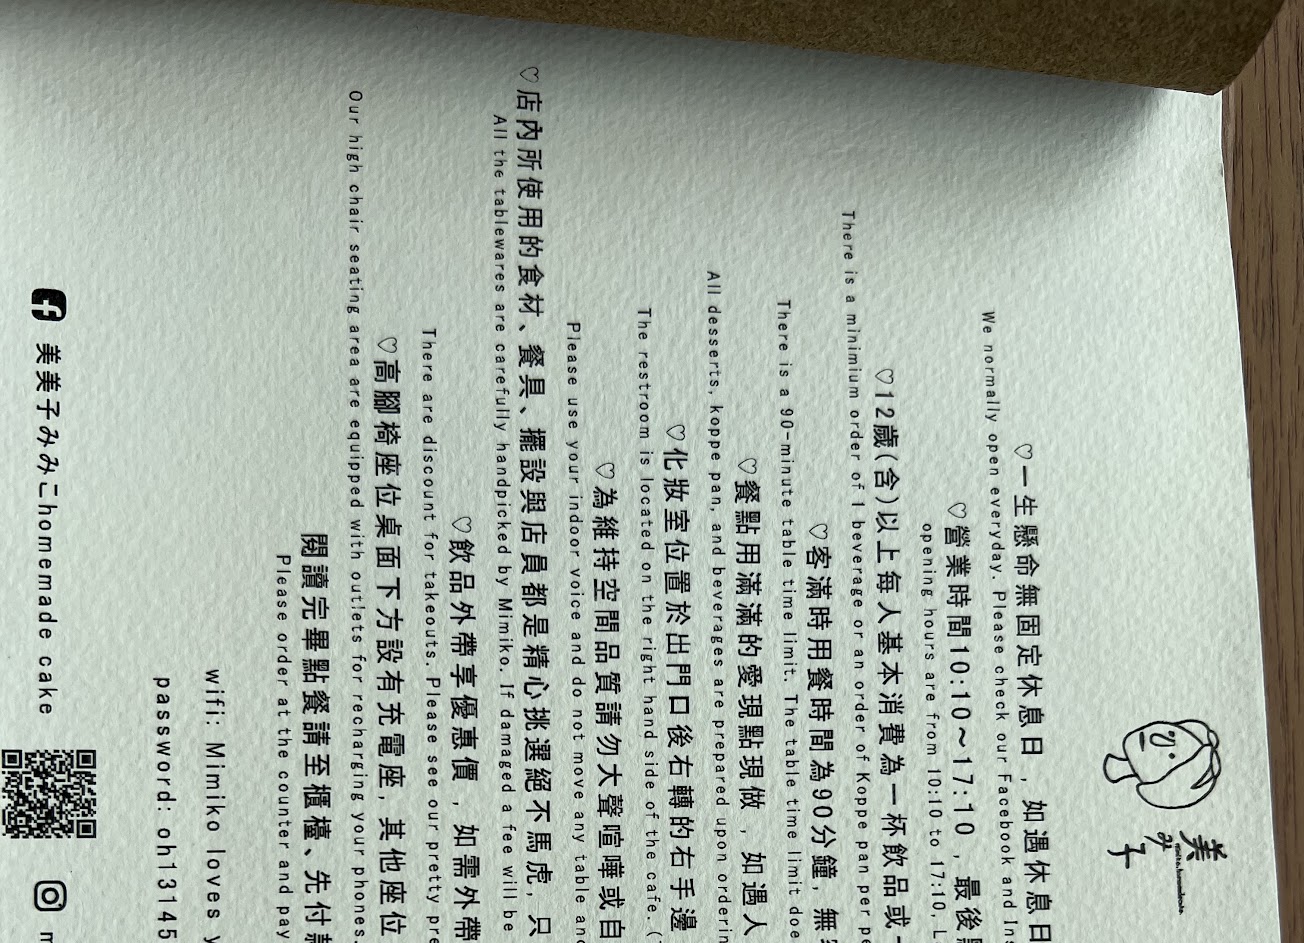 美み子
♡一生懸命無固定休息日，如遇休息日
We normally open everyday. Please check our Facebook and Ins
♡營業時間10:10～17:10，最後
opening hours are from 10:10 to 17:10, L
♡12歲(含)以上每人基本消費為一杯飲品或
There is a minimium order of 1 beverage or an order of Koppe pan per pe
♡客滿時用餐時間為90分鐘，無
There is a 90-minute table time limit. The table time limit doe
♡餐點用滿滿的愛現點現做，如遇人
All desserts, koppe pan, and beverages are prepared upon orderin
♡化妝室位置於出門口後右轉的右手邊
The restroom is located on the right hand side of the cafe. (
♡為維持空間品質請勿大聲喧嘩或自
Please use your indoor voice and do not move any table and
♡店內所使用的食材、餐具、擺設與店員都是精心挑選絕不馬虎，只
All the tablewares are carefully handpicked by Mimiko. If damaged a fee will be
♡飲品外帶享優惠價，如需外帶
There are discount for takeouts. Please see our pretty pre
♡高腳椅座位桌面下方設有充電座，其他座位
Our high chair seating area are equipped with outlets for recharging your phones.
閱讀完畢點餐請至櫃檯、先付
Please order at the counter and pay
wifi: Mimiko loves y
password: oh13145
美美子みみこhomemade cake